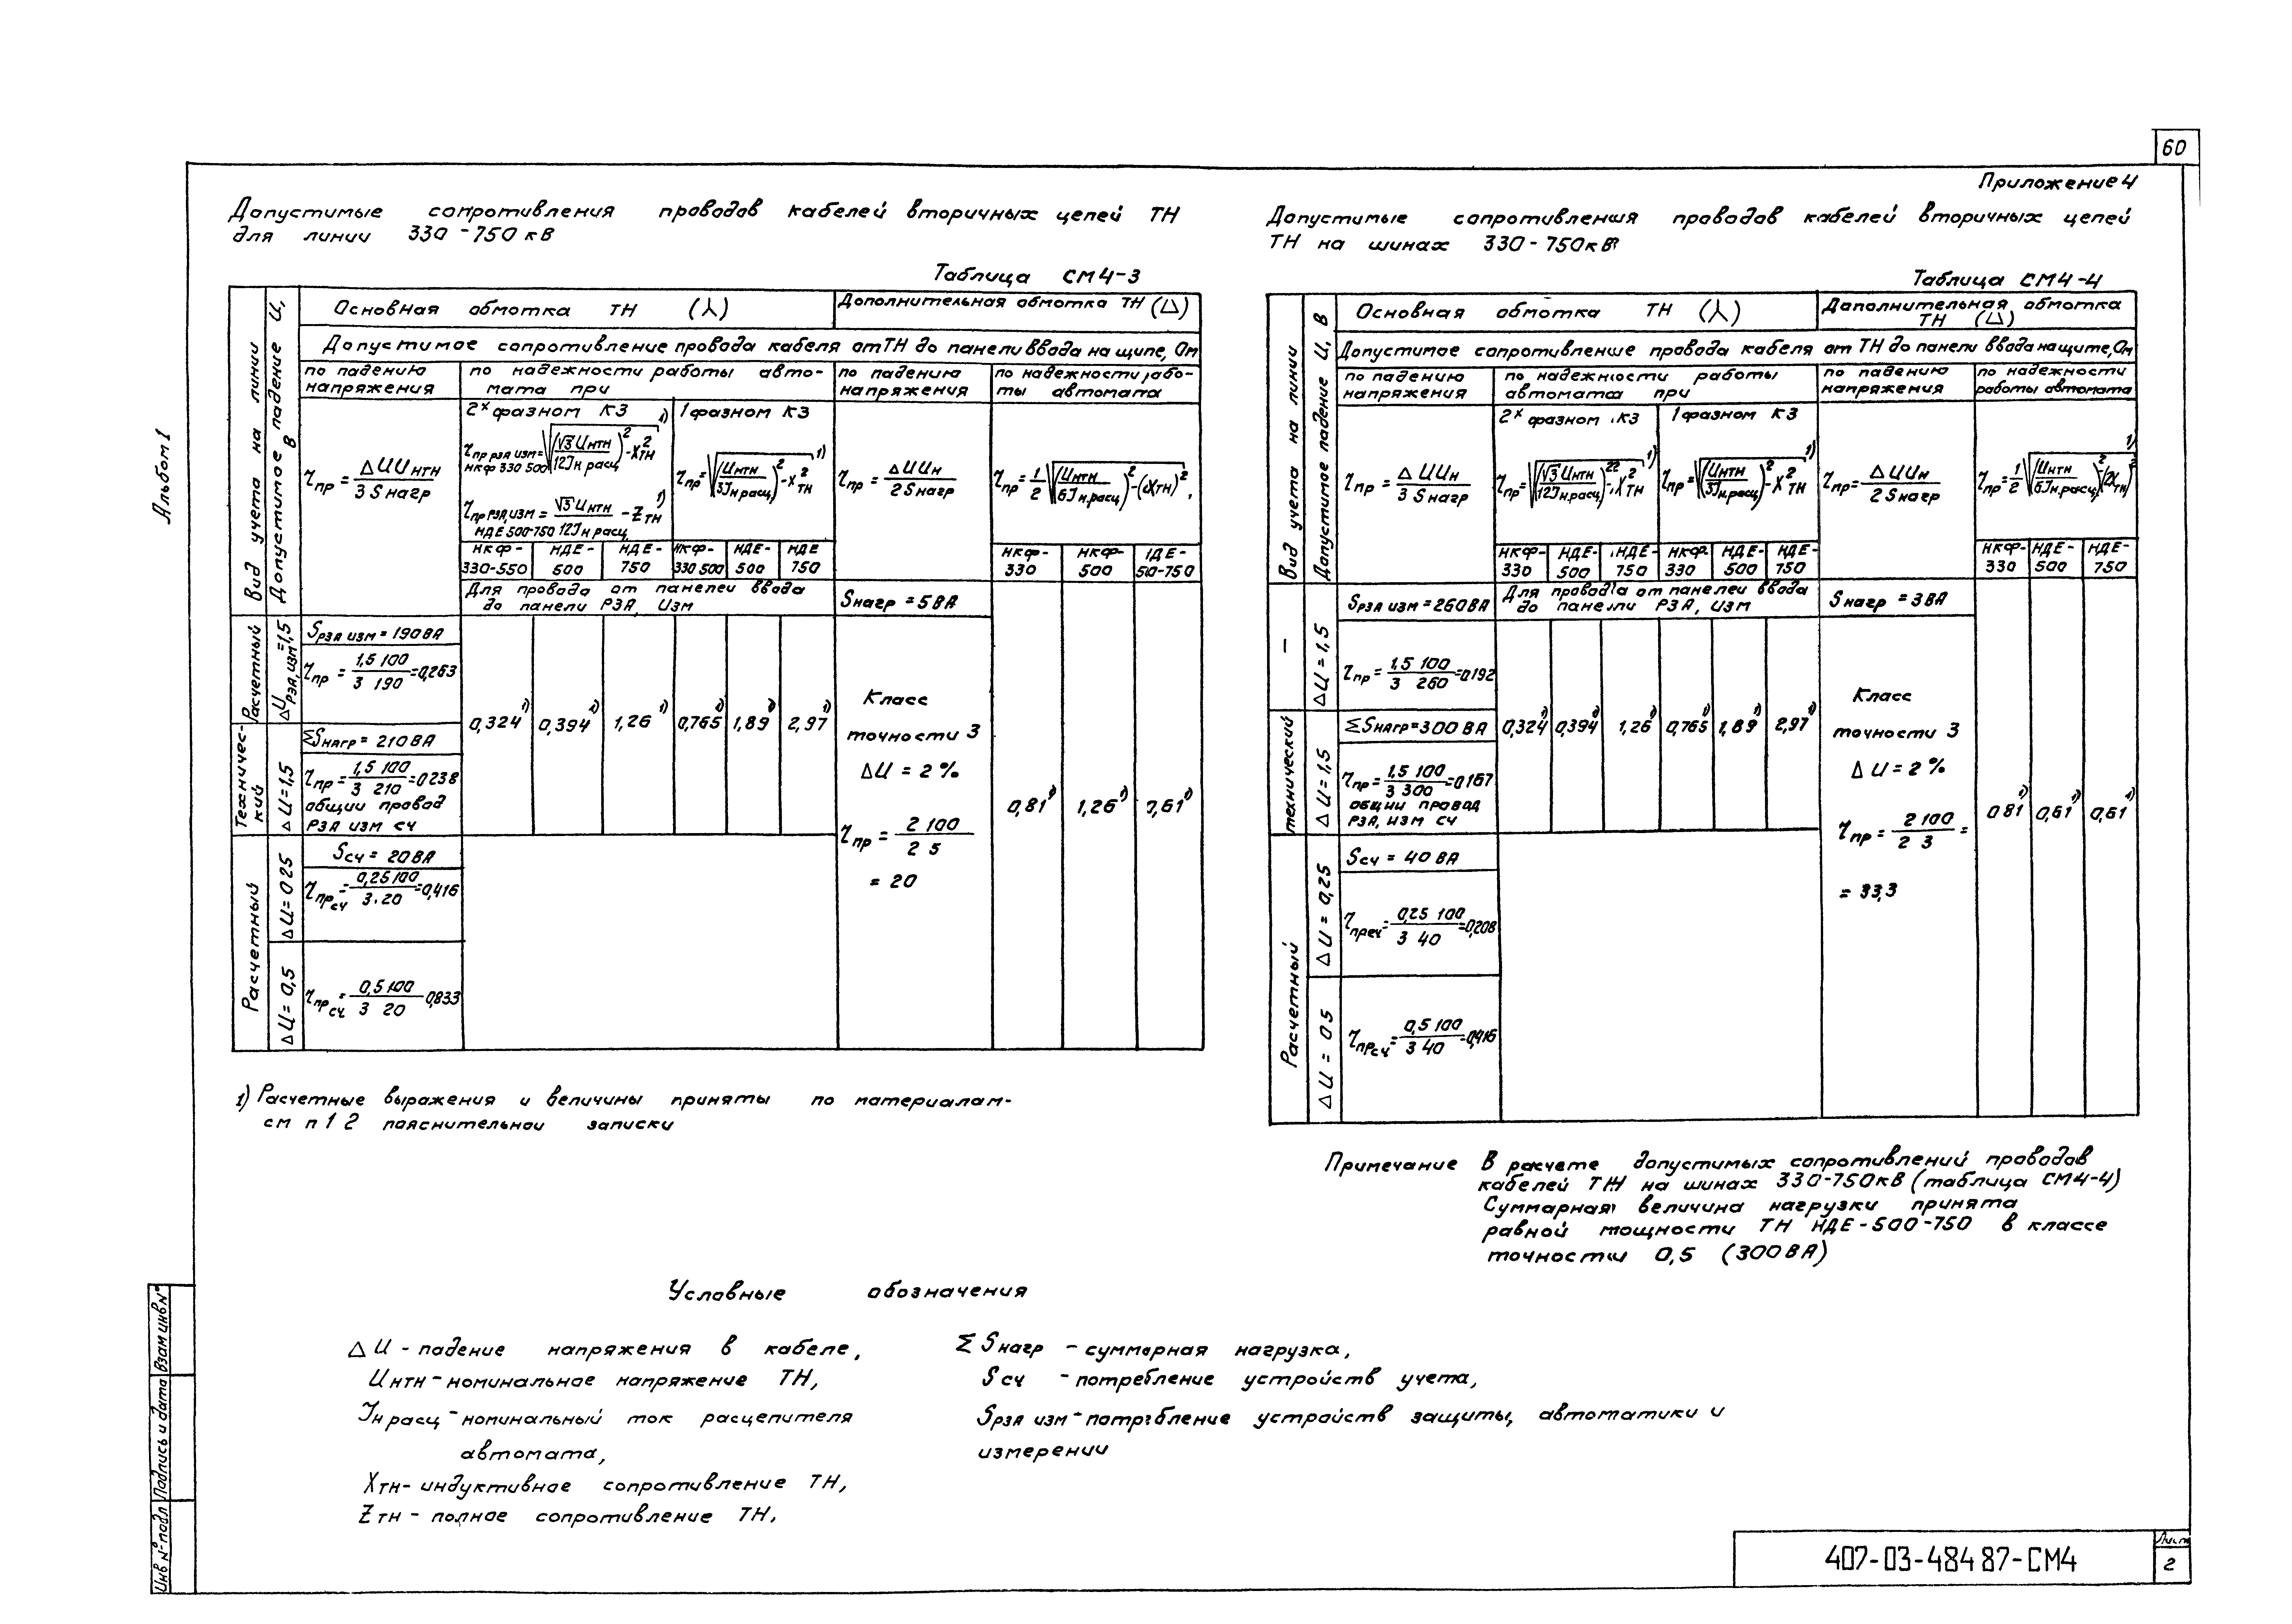 60
Приложение 4
Альбом 1
Допустимые сопротивления проводов кабелей вторичных цепей ТН
для линии 330-750 кВ
Таблица СМ4-3
Вид учета на линии
Допустимое падение U, В
Основная обмотка ТН (⅄)
Дополнительная обмотка ТН
Допустимое сопротивление провода кабеля от ТН до панели ввода на щите, Ом
по падению
напряжения
по надежности работы авто-
мата при
по падению
напряжения
по надежности рабо-
ты автомата
2х фазном КЗ
1 фазном КЗ
τпр = ΔU Uнтн / 3 Sнагр
τпр рза изм = √((√3 Uнтн / 12 Iн расц)² - X²тн) 1)
НКФ 330 500
τпр рза, изм = √3 Uнтн / 12 Iн расц - Zтн 1)
НДЕ 500-750
τпр = √((Uнтн / 3 Iн.расц)² - X²тн) 1)
τпр = ΔU Uн / 2 Sнагр
τпр = 1/2 √((Uнтн / 6 Iн.расц)² - (2Xтн)²
НКФ-330-550 НДЕ-500 НДЕ-750 НКФ-330 500 НДЕ-500 НДЕ 750
НКФ-330 НКФ-500 НДЕ-500-750
Для провода от панелей ввода
до панели РЗА, Изм
Sнагр = 5 ВА
Расчетный
ΔU рза, изм = 1,5
Sрза изм = 190 ВА
τпр = 1,5 100 / 3 190 = 0,263
Техничес-
кий
ΔU = 1,5
ΣSнагр = 210 ВА
τпр = 1,5 100 / 3 210 = 0,238
общий провод
РЗА изм сч
0,324 1) 0,394 1) 1,26 1) 0,765 1) 1,89 1) 2,97 1)
Класс
точности 3
ΔU = 2%
τпр = 2 100 / 2 5
= 20
0,81 1) 1,26 1) 0,61 1)
Расчетный
ΔU = 0 25
Sсч = 20 ВА
τпр сч = 0,25 100 / 3·20 = 0,416
ΔU = 0,5
τпр сч = 0,5 100 / 3 20 0,833
1) Расчетные выражения и величины приняты по материалам-
см п 1 2 пояснительной записки
Допустимые сопротивления проводов кабелей вторичных цепей
ТН на шинах 330-750кВ
Таблица СМ4-4
Вид учета на линии
Допустимое падение U, В
Основная обмотка ТН (⅄)
Дополнительная обмотка
ТН
Допустимое сопротивление провода кабеля от ТН до панели ввода на щите, Ом
по падению
напряжения
по надежности работы
автомата при
по падению
напряжения
по надежности
работы автомата
2х фазном КЗ
1 фазном КЗ
τпр = ΔU Uн / 3 Sнагр
τпр = √((√3 Uнтн / 12 Iн.расц)² - X²тн) 1)
τпр = √((Uнтн / 3 Iн.расц)² - X²тн) 1)
τпр = ΔU Uн / 2 Sнагр
τпр = 1/2 √((Uнтн / 6 Iн.расц)² - (2Xтн)²) 1)
НКФ-330 НДЕ-500 НДЕ-750 НКФ-330 НДЕ-500 НДЕ-750
НКФ-330 НДЕ-500 НДЕ-750
Для провода от панелей ввода
до панели РЗА, изм
Sнагр = 3 ВА
—
ΔU = 1,5
Sрза изм = 260 ВА
τпр = 1.5 100 / 3 260 = 0,192
технический
ΔU = 1,5
ΣSнагр = 300 ВА
τпр = 1,5 100 / 3 300 = 0,167
общий провод
РЗА, изм сч
0,324 1) 0,394 1) 1,26 1) 0,765 1) 1,89 1) 2,97 1)
Класс
точности 3
ΔU = 2%
τпр = 2 100 / 2 3 =
= 33,3
0 81 0,61 1) 0,61 1)
Расчетный
ΔU = 0,25
Sсч = 40 ВА
τпр сч = 0,25 100 / 3 40 = 0,208
ΔU = 0 5
τпр сч = 0,5 100 / 3 40 = 0,416
Примечание В расчете допустимых сопротивлений проводов
кабелей ТН на шинах 330-750кВ (таблица СМ4-4)
Суммарная величина нагрузки принята
равной мощности ТН НДЕ-500-750 в классе
точности 0,5 (300 ВА)
Условные обозначения
ΔU - падение напряжения в кабеле,
Uнтн - номинальное напряжение ТН,
Iн расц - номинальный ток расцепителя
автомата,
Xтн - индуктивное сопротивление ТН,
Zтн - полное сопротивление ТН,
ΣSнагр - суммарная нагрузка,
Sсч - потребление устройств учета,
Sрза изм - потребление устройств защиты, автоматики и
измерении
Взам инв №
Подпись и дата
Инв № подл
407-03-484 87-СМ4
Лист
2